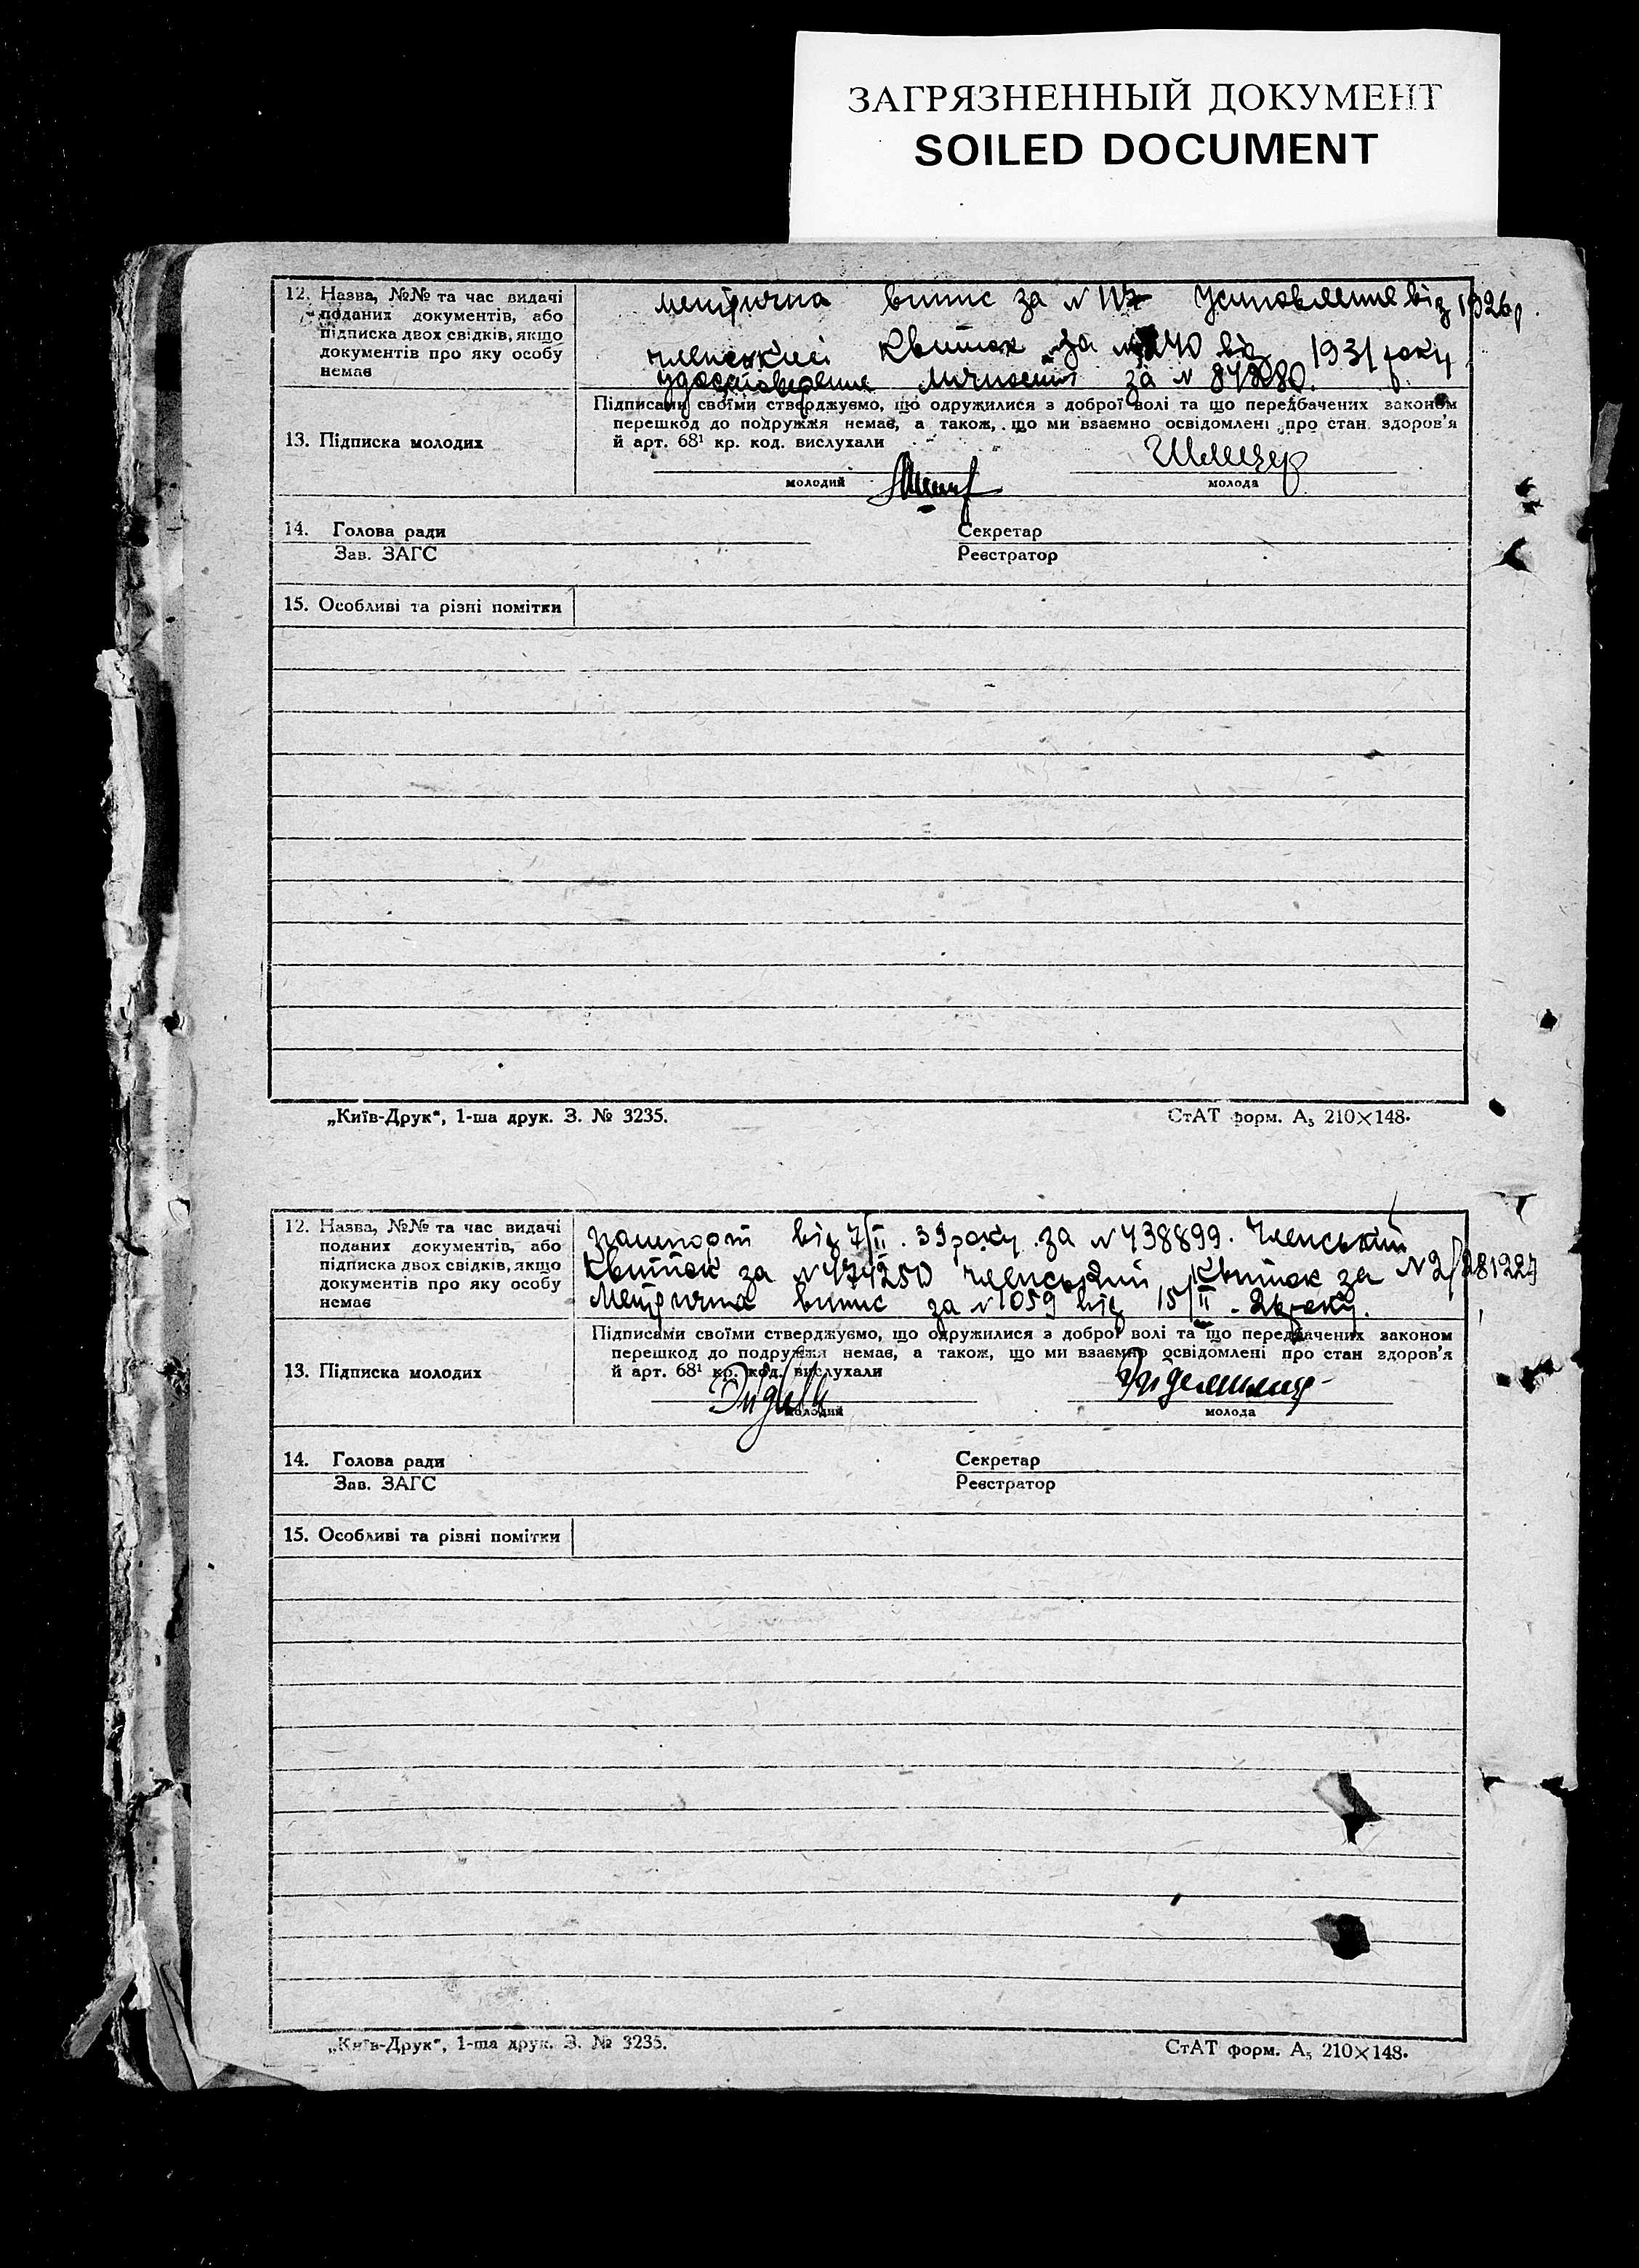 ЗАГРЯЗНЕННЫЙ ДОКУМЕНТ
SOILED DOCUMENT
12. Назва, №№ та час видачі
поданих документів, або
підписка двох свідків, якщо
документів про яку особу
немає
метрична випис за N 117 Установлення від 1926 р.
членский квиток за 240 від 1931 року
удостоверение личности за N
13. Підписка молодих
Підписами своїми стверджуємо, що одружилися з доброї волі та що передбачених законом
перешкод до подружжя немає, а також, що ми взаємно освідомлені про стан здоров'я
й арт. 68¹ кр. код. вислухали
молодий
молода
14. Голова ради Секретар
Зав. ЗАГС Реєстратор
15. Особливі та різні помітки
„Київ-Друк“, 1-ша друк. З. № 3235. СтАТ форм. А₅ 210×148.
12. Назва, №№ та час видачі
поданих документів, або
підписка двох свідків, якщо
документів про яку особу
немає
пашпорт від 7/II. 33 року за N 438899. Членський
квиток за N 474250 членський квиток за N 2/281227
Метрична випис за N 1059 від 15/II - року.
13. Підписка молодих
Підписами своїми стверджуємо, що одружилися з доброї волі та що передбачених законом
перешкод до подружжя немає, а також, що ми взаємно освідомлені про стан здоров'я
й арт. 68¹ кр. код. вислухали
молодий
молода
14. Голова ради Секретар
Зав. ЗАГС Реєстратор
15. Особливі та різні помітки
„Київ-Друк“, 1-ша друк. З. № 3235. СтАТ форм. А₅ 210×148.